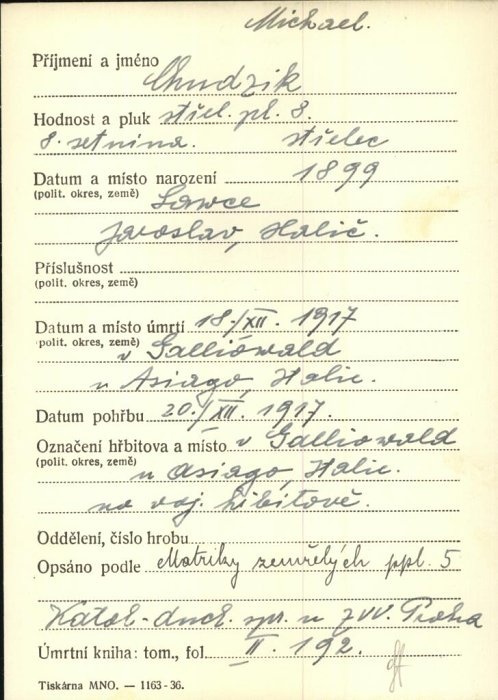 Michael.
Příjmení a jméno Chudzik
Hodnost a pluk střel. pl. 8.
8. setnina. střelec
Datum a místo narození 1899
(polit. okres, země) Lawce
Jaroslav, Halič.
Příslušnost
(polit. okres, země)
Datum a místo úmrtí 18./XII. 1917
(polit. okres, země) v Galliowald
u Asiago, Italie.
Datum pohřbu 20./XII. 1917.
Označení hřbitova a místo v Galliowald
(polit. okres, země) u Asiago, Italie.
na voj. hřbitově.
Oddělení, číslo hrobu
Opsáno podle Matriky zemřelých ppl. 5
Katol. duch. spr. u ZVV. Praha
Úmrtní kniha: tom., fol. II. 192.
Tiskárna MNO. — 1163-36.